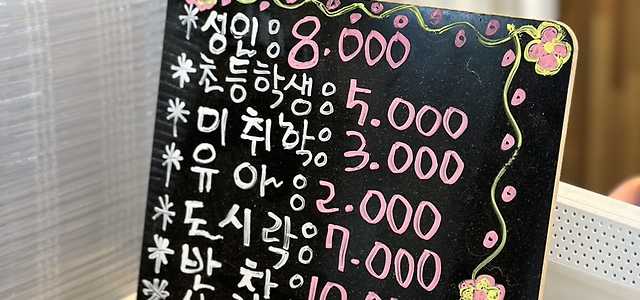 *성인: 8.000
*초등학생: 5.000
*미취학: 3.000
*유아: 2.000
*도시락: 7.000
*반찬: 10.